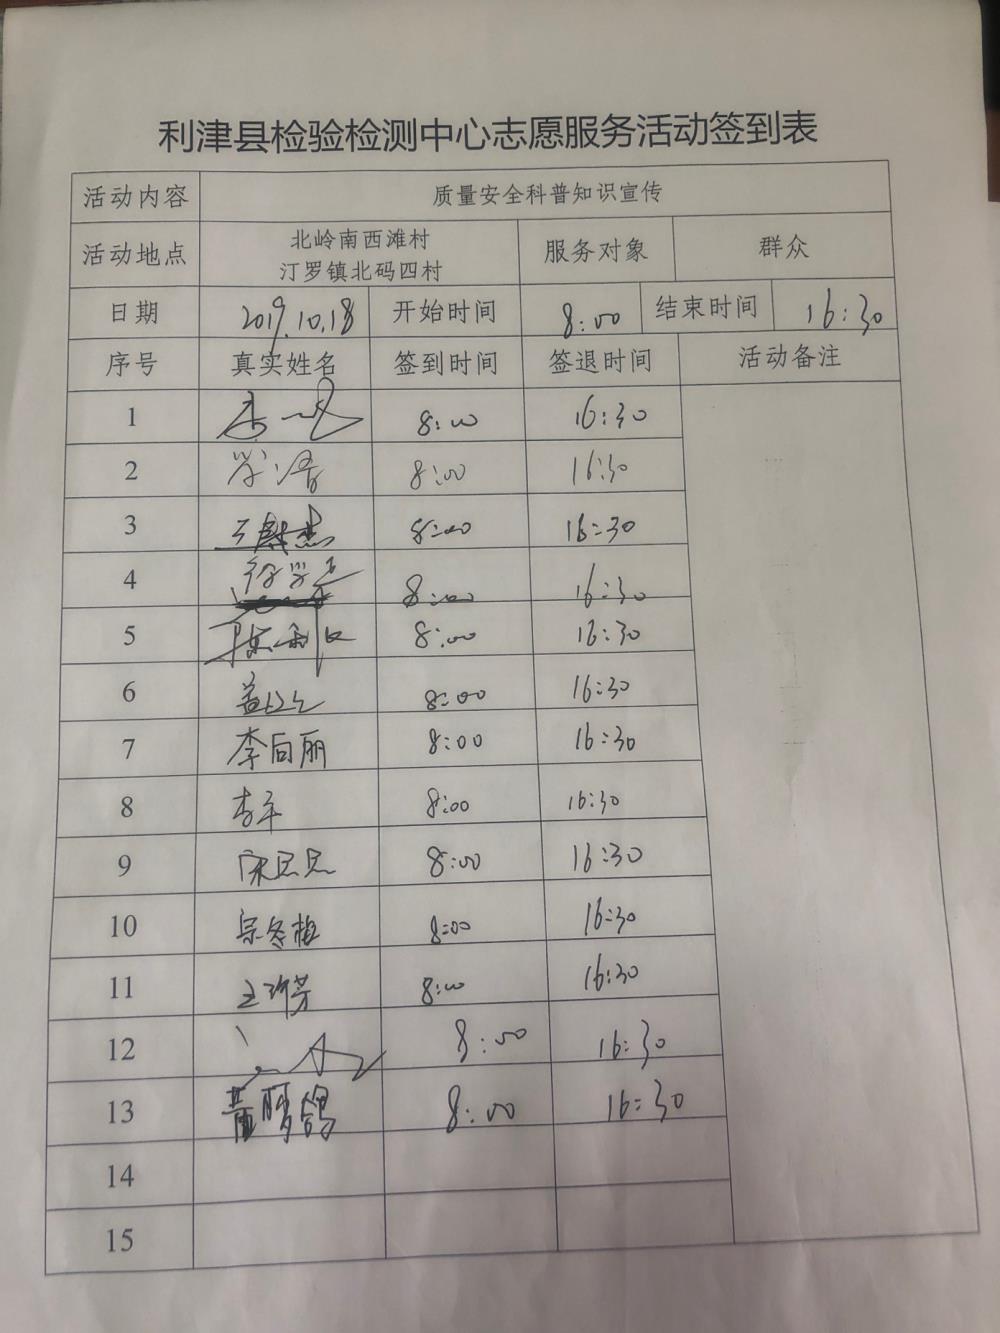 利津县检验检测中心志愿服务活动签到表
活动内容 质量安全科普知识宣传
活动地点 北岭南西滩村 汀罗镇北码四村 服务对象 群众
日期 2019.10.18 开始时间 8:00 结束时间 16:30
序号 真实姓名 签到时间 签退时间 活动备注
1 8:00 16:30
2 8:00 16:30
3 8:00 16:30
4 8:00 16:30
5 8:00 16:30
6 8:00 16:30
7 李向丽 8:00 16:30
8 李军 8:00 16:30
9 8:00 16:30
10 宗冬梅 8:00 16:30
11 8:00 16:30
12 8:00 16:30
13 董梦鸽 8:00 16:30
14
15